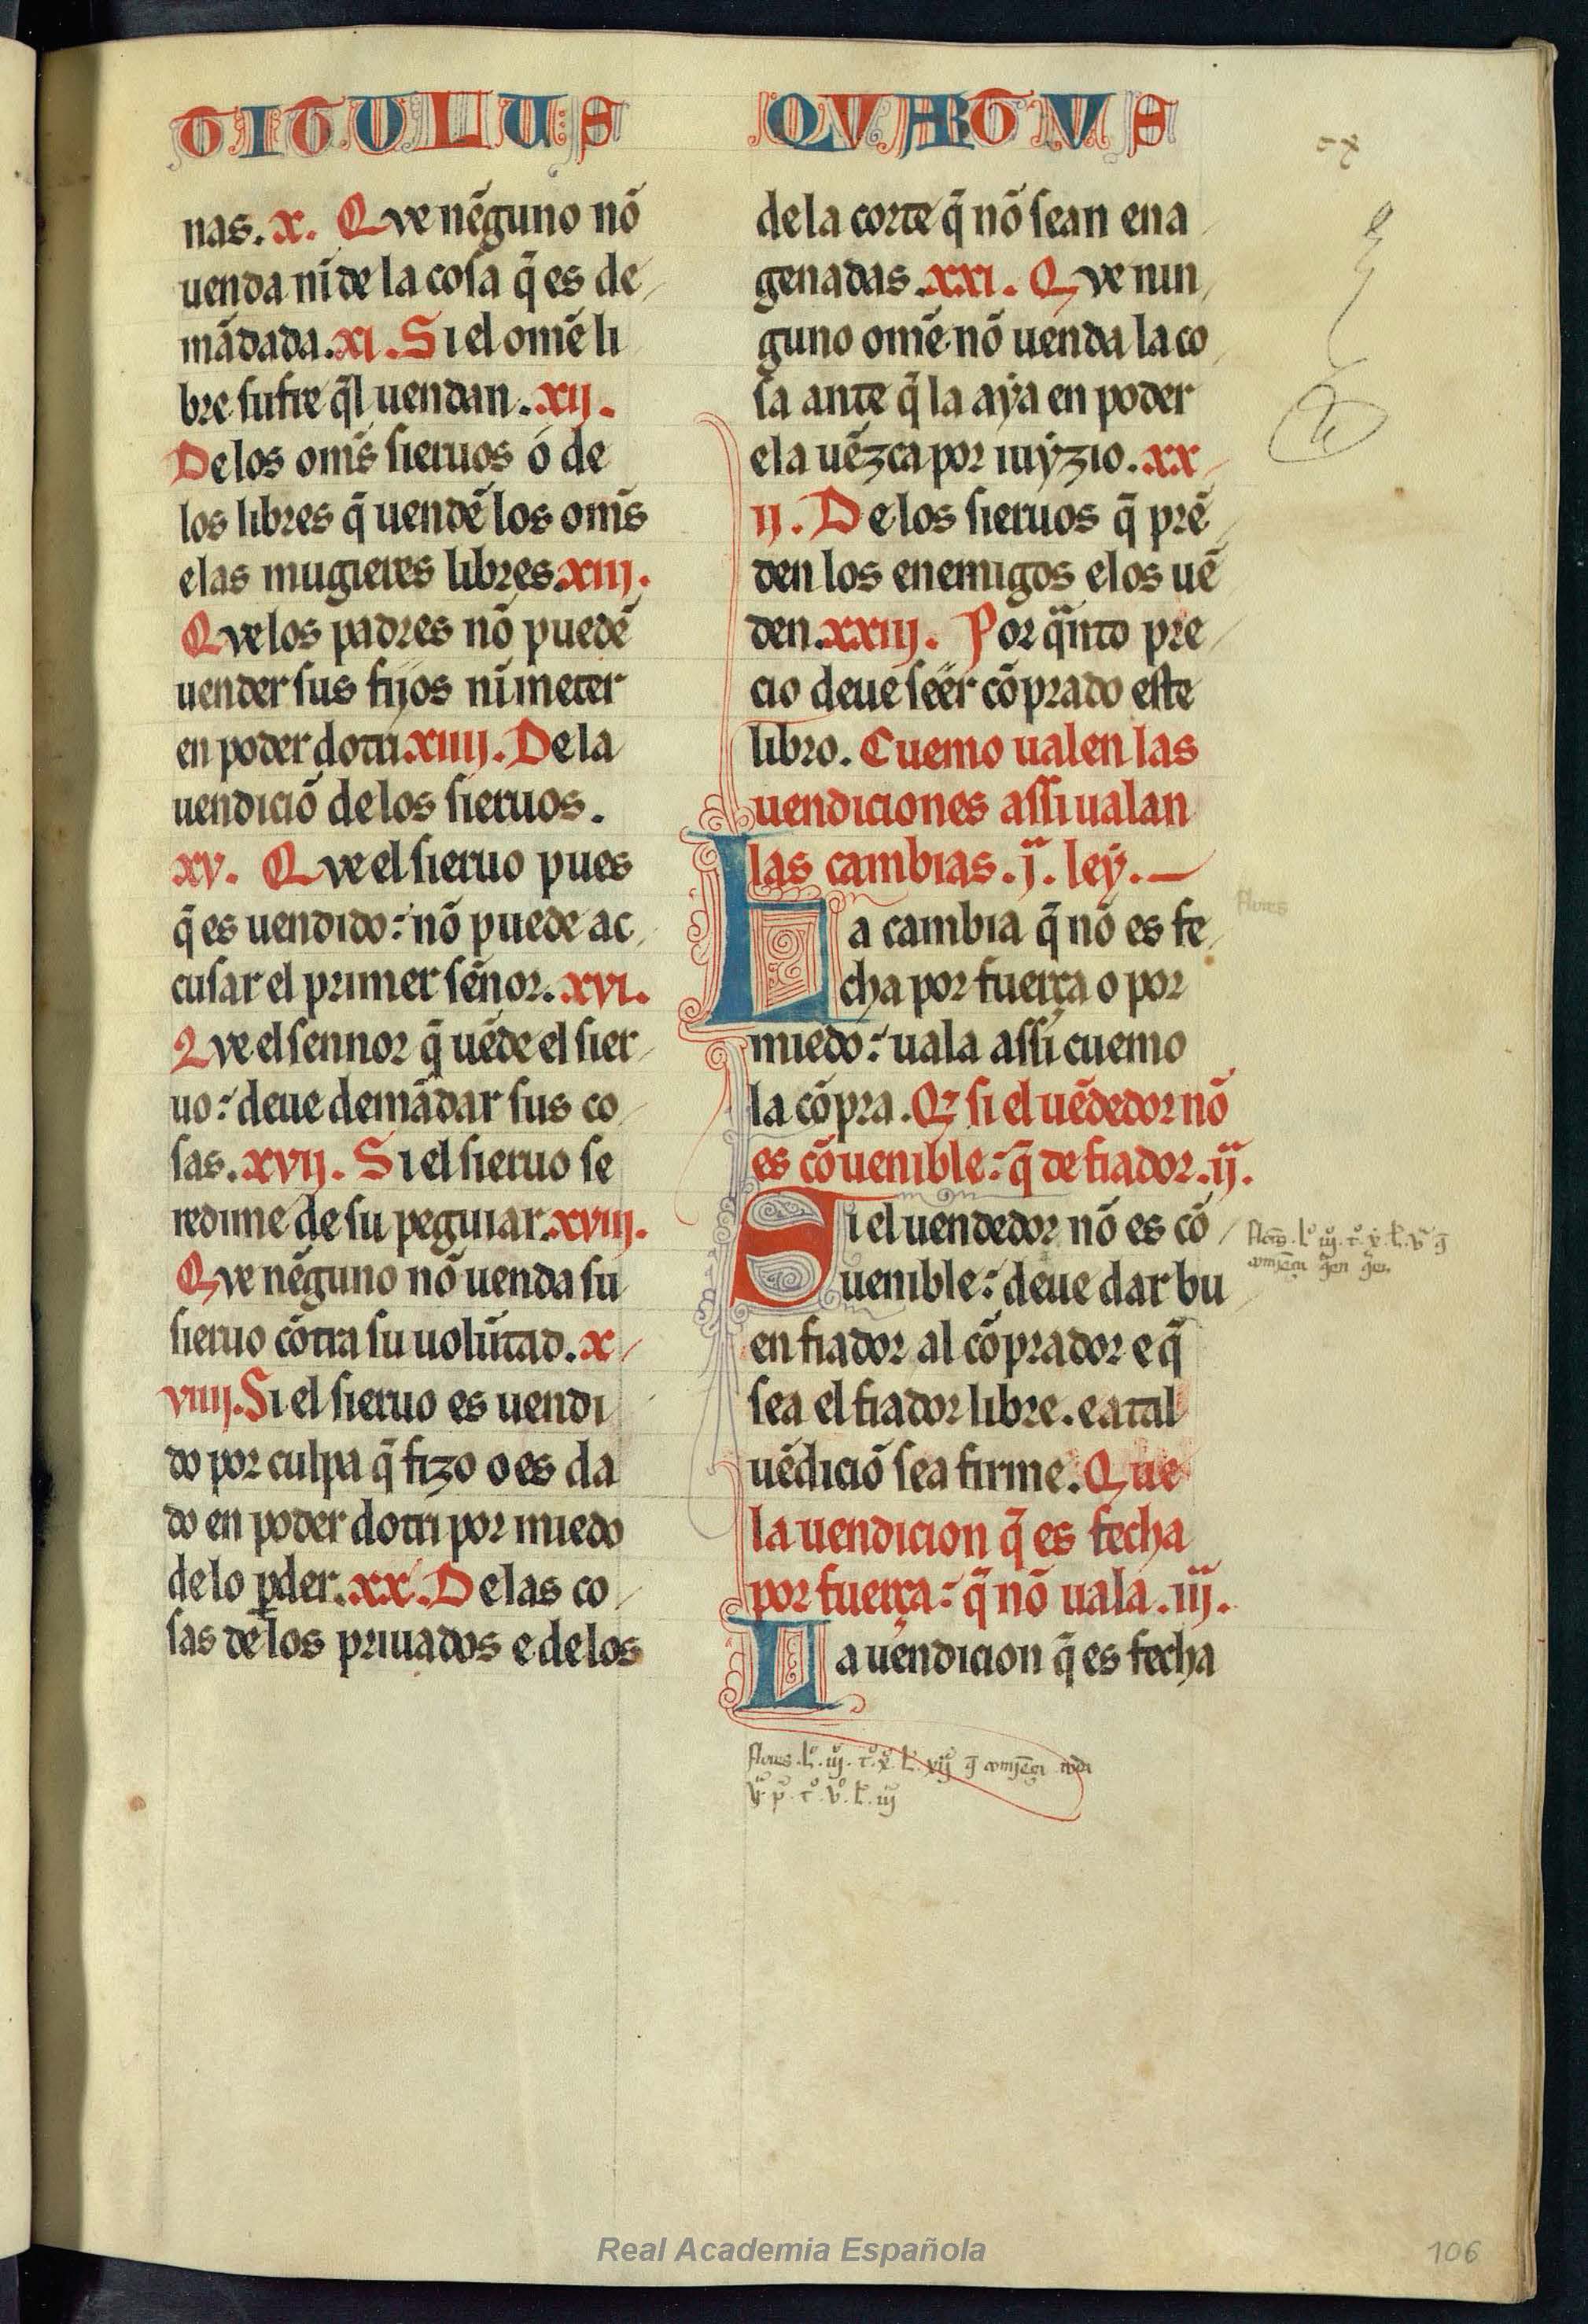 TITULUS QVARTVS
nas. x. Qve nẽguno nõ
uenda nĩ de la cosa q̃ es de
mãdada. xi. Si el omẽ li
bre sufre q̃l uendan. xij.
De los om̃s sieruos ó de
los libres q̃ uendẽ los om̃s
e las mugieres libres. xiij.
Qve los padres nõ puedẽ
uender sus fijos nĩ meter
en poder dotri. xiiij. De la
uendiciõ de los sieruos.
xv. Qve el sieruo pues
q̃ es uendido: nõ puede ac
cusar el primer señor. xvi.
Qve el sennor q̃ uẽde el sier
uo: deue demãdar sus co
sas. xvij. Si el sieruo se
redime de su peguiar. xviij.
Qve nẽguno nõ uenda su
sieruo cõtra su uolũtad. x
viiij. Si el sieruo es uendi
do por culpa q̃ fizo o es da
do en poder dotri por miedo
de lo ꝑder. xx. De las co
sas de los priuados e de los
de la corte q̃ nõ sean ena
genadas. xxi. Qve nin
guno omẽ nõ uenda la co
sa ante q̃ la aẏa en poder
e la uẽzca por iuẏzio. xx
ij. De los sieruos q̃ prẽ
den los enemigos e los uẽ
den. xxiij. Por q̃nto pre
cio deue seer cõprado este
libro. Cuemo ualen las
uendiciones assi ualan
las cambias. j. leẏ.
La cambia q̃ nõ es fe
cha por fuerça o por
miedo: uala assi cuemo
la cõpra. Q̃ si el uẽdedor nõ
es cõuenible: q̃ de fiador. ij.
Si el uendedor nõ es cõ
uenible: deue dar bu
en fiador al cõprador e q̃
sea el fiador libre. e atal
uẽdiciõ sea firme. Que
la uendicion q̃ es fecha
por fuerça: q̃ nõ uala. iij.
La uendicion q̃ es fecha
Real Academia Española
106